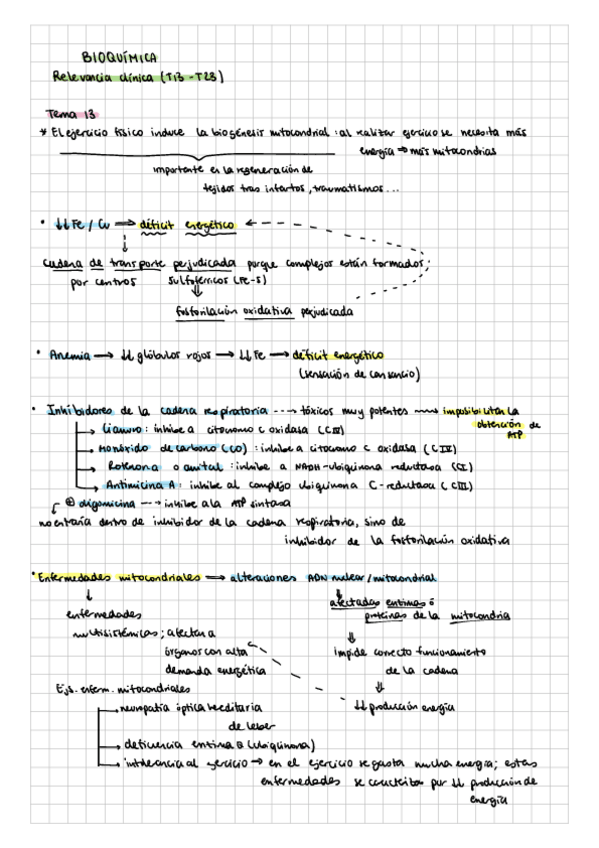 BIOQUÍMICA
Relevancia clínica (T13-T23)
Tema 13
* El ejercicio físico induce la biogénesis mitocondrial: al realizar ejercicio se necesita más
energía ⇒ más mitocondrias
importante en la regeneración de
tejidos tras infartos, traumatismos...
• ↓↓ Fe / Cu ⇒ déficit energético
cadena de transporte perjudicada porque complejos están formados
por centros sulfoférricos (Fe-S)
fosforilación oxidativa perjudicada
• Anemia → ↓↓ glóbulos rojos → ↓↓ Fe → déficit energético
(sensación de cansancio)
• Inhibidores de la cadena respiratoria ---→ tóxicos muy potentes → imposibilitan la
obtención de
ATP
→ Cianuro: inhibe a citocromo c oxidasa (CIV)
→ Monóxido de carbono (CO): inhibe a citocromo c oxidasa (CIV)
→ Rotenona o amital: inhibe a NADH-ubiquinona reductasa (CI)
→ Antimicina A: inhibe al complejo ubiquinona C-reductasa (CIII)
⊕ oligomicina --→ inhibe a la ATP sintasa
no entraría dentro de inhibidor de la cadena respiratoria, sino de
inhibidor de la fosforilación oxidativa
• Enfermedades mitocondriales ⇒ alteraciones ADN nuclear/mitocondrial
↓ afectadas enzimas ó
enfermedades proteínas de la mitocondria
multisistémicas; afectan a
órganos con alta impide correcto funcionamiento
demanda energética de la cadena
Ejs. enferm. mitocondriales
↓↓ producción energía
→ neuropatía óptica hereditaria
de Leber
→ deficiencia enzima Q (ubiquinona)
→ intolerancia al ejercicio → en el ejercicio se gasta mucha energía; estas
enfermedades se caracterizan por ↓↓ producción de
energía